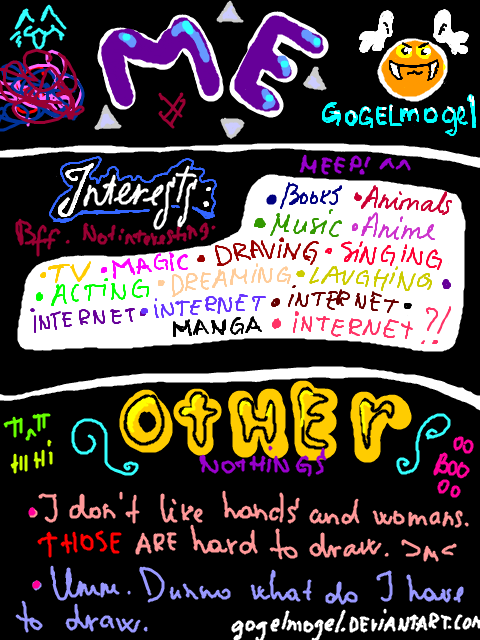 ME
GOGELmogel
MEEP! ^^
Interests:
Bff. Not interesting.
•Books •Animals
•Music •Anime
•TV •MAGIC •DRAVING •SINGING
•ACTING •DREAMING •LAUGHING •
INTERNET •INTERNET •INTERNET •
MANGA •INTERNET ?!
OtHEr
NOTHINGS
π^π
HiHi
OO
BOO
OO
•I don't like hands and womans.
THOSE ARE hard to draw. >m<
•Umm. Dunno what do I have
to draw.
gogelmogel.DEVIANTART.COM